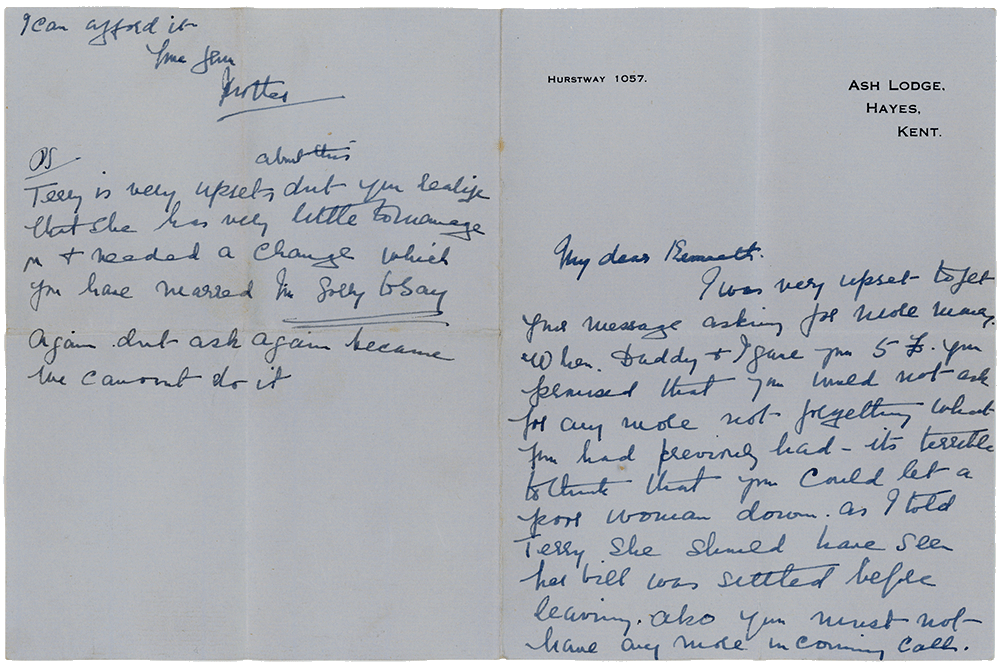 HURSTWAY 1057.
ASH LODGE,
HAYES,
KENT.
My dear Kenneth.
I was very upset to get
your message asking for more money.
When Daddy & I gave you 5 £. you
promised that you would not ask
for any more not forgetting what
you had previously had - its terrible
to think that you could let a
poor woman down. as I told
Terry she should have seen
her bill was settled before
leaving. also you must not
have any more incoming calls.
I can afford it
Mother
PS
about this
Terry is very upset, dont you realize
that she has very little to manage
on & needed a change which
you have marred Im sorry to say
Again dont ask again because
we cannot do it